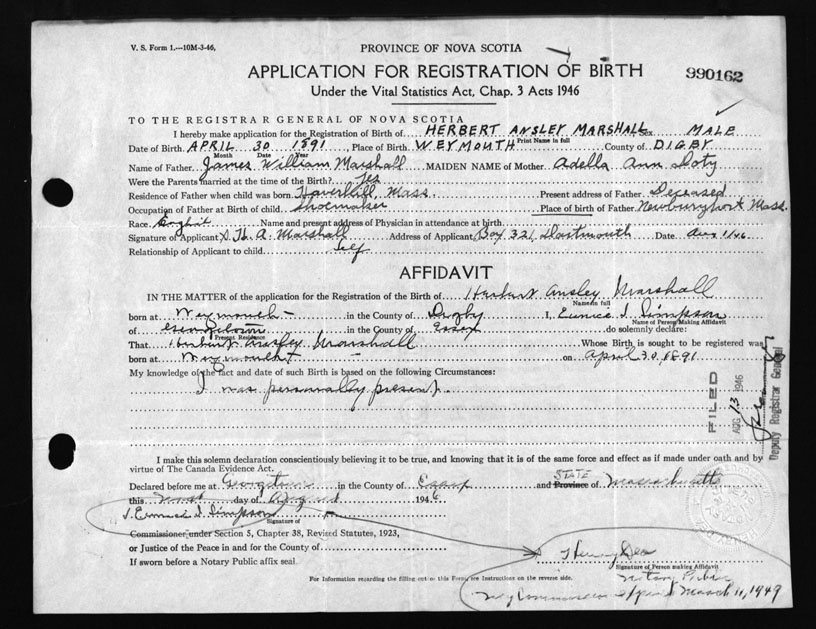 V. S. Form 1.—10M-3-46.
PROVINCE OF NOVA SCOTIA
APPLICATION FOR REGISTRATION OF BIRTH
990162
Under the Vital Statistics Act, Chap. 3 Acts 1946
TO THE REGISTRAR GENERAL OF NOVA SCOTIA
I hereby make application for the Registration of Birth of HERBERT ANSLEY MARSHALL Sex MALE
Print Name in full
Date of Birth APRIL 30 1891, Place of Birth WEYMOUTH County of DIGBY
Month Date Year
Name of Father James William Marshall MAIDEN NAME of Mother Adella Ann Doty
Were the Parents married at the time of the Birth? Yes
Residence of Father when child was born Haverhill, Mass. Present address of Father Deceased
Occupation of Father at Birth of child Shoemaker Place of birth of Father Newburyport Mass.
Race English Name and present address of Physician in attendance at birth
Signature of Applicant H. A. Marshall Address of Applicant Box 321 Dartmouth Date Aug 1/46
Relationship of Applicant to child Self
AFFIDAVIT
IN THE MATTER of the application for the Registration of the Birth of Herbert Ansley Marshall
Name in full
born at Weymouth in the County of Digby I, Eunice I Simpson
Name of Person Making Affidavit
of Georgetown in the County of Essex do solemnly declare:
Present Residence
That Herbert Ansley Marshall Whose Birth is sought to be registered was
born at Weymouth on April 30, 1891
My knowledge of the fact and date of such Birth is based on the following Circumstances:
I was personally present.
FILED
AUG 13 1946
Deputy Registrar General
I make this solemn declaration conscientiously believing it to be true, and knowing that it is of the same force and effect as if made under oath and by
virtue of The Canada Evidence Act.
Declared before me at Georgetown in the County of Essex and STATE Province of Massachusetts
this first day of August 1946
Eunice I Simpson
Signature of
Commissioner under Section 5, Chapter 38, Revised Statutes, 1923,
or Justice of the Peace in and for the County of
If sworn before a Notary Public affix seal
Henry
Signature of Person making Affidavit
Notary Public
For Information regarding the filling out of this Form, see Instructions on the reverse side.
My Commission Expires March 11, 1949